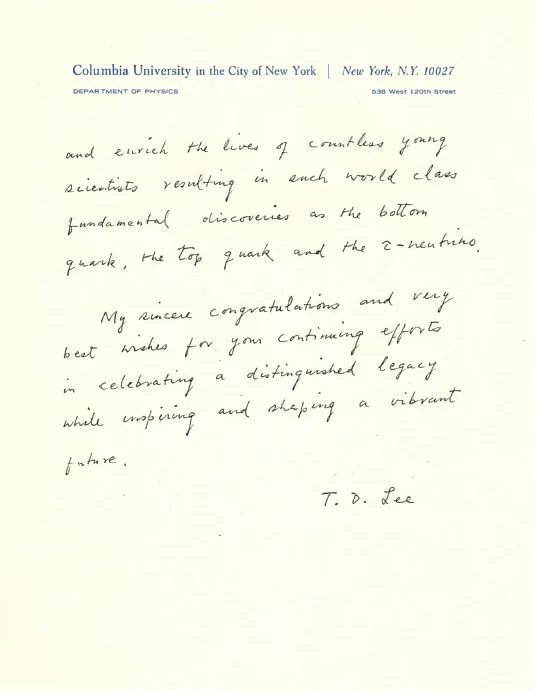 Columbia University in the City of New York | New York, N.Y. 10027
DEPARTMENT OF PHYSICS 538 West 120th Street
and enrich the lives of countless young
scientists resulting in such world class
fundamental discoveries as the bottom
quark, the top quark and the τ-neutrino.
My sincere congratulations and very
best wishes for your continuing efforts
in celebrating a distinguished legacy
while inspiring and shaping a vibrant
future.
T. D. Lee